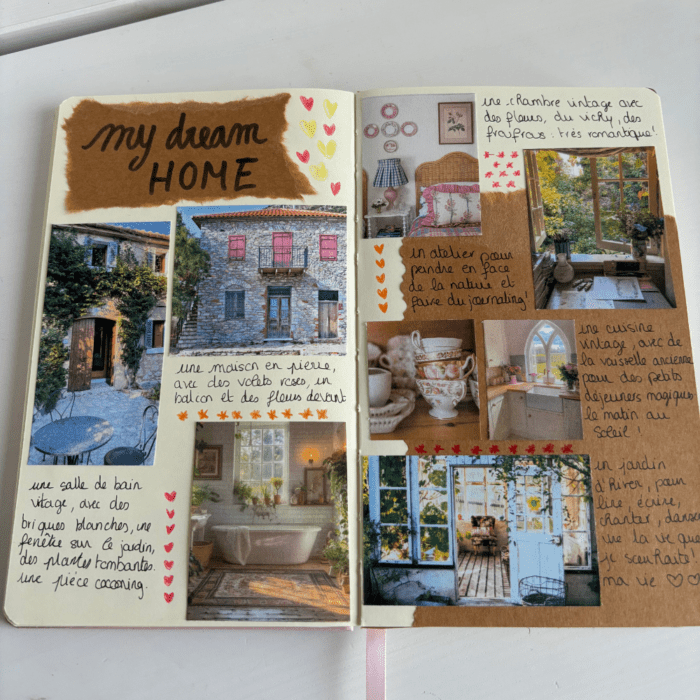 my dream
HOME
une maison en pierre,
avec des volets roses, un
balcon et des fleurs devant
une salle de bain
vitage, avec des
briques blanches, une
fenêtre sur le jardin,
des plantes tombantes.
une pièce cocooning.
une chambre vintage avec
des fleurs, du vichy, des
froufrous : très romantique!
un atelier pour
peindre en face
de la nature et
faire du journaling!
une cuisine
vintage, avec de
la vaisselle ancienne
pour des petits
déjeuners magiques
le matin au
soleil!
un jardin
d'hiver, pour
lire, écrire,
chanter, danser
vie que
je souhaite!
ma vie ♡♡